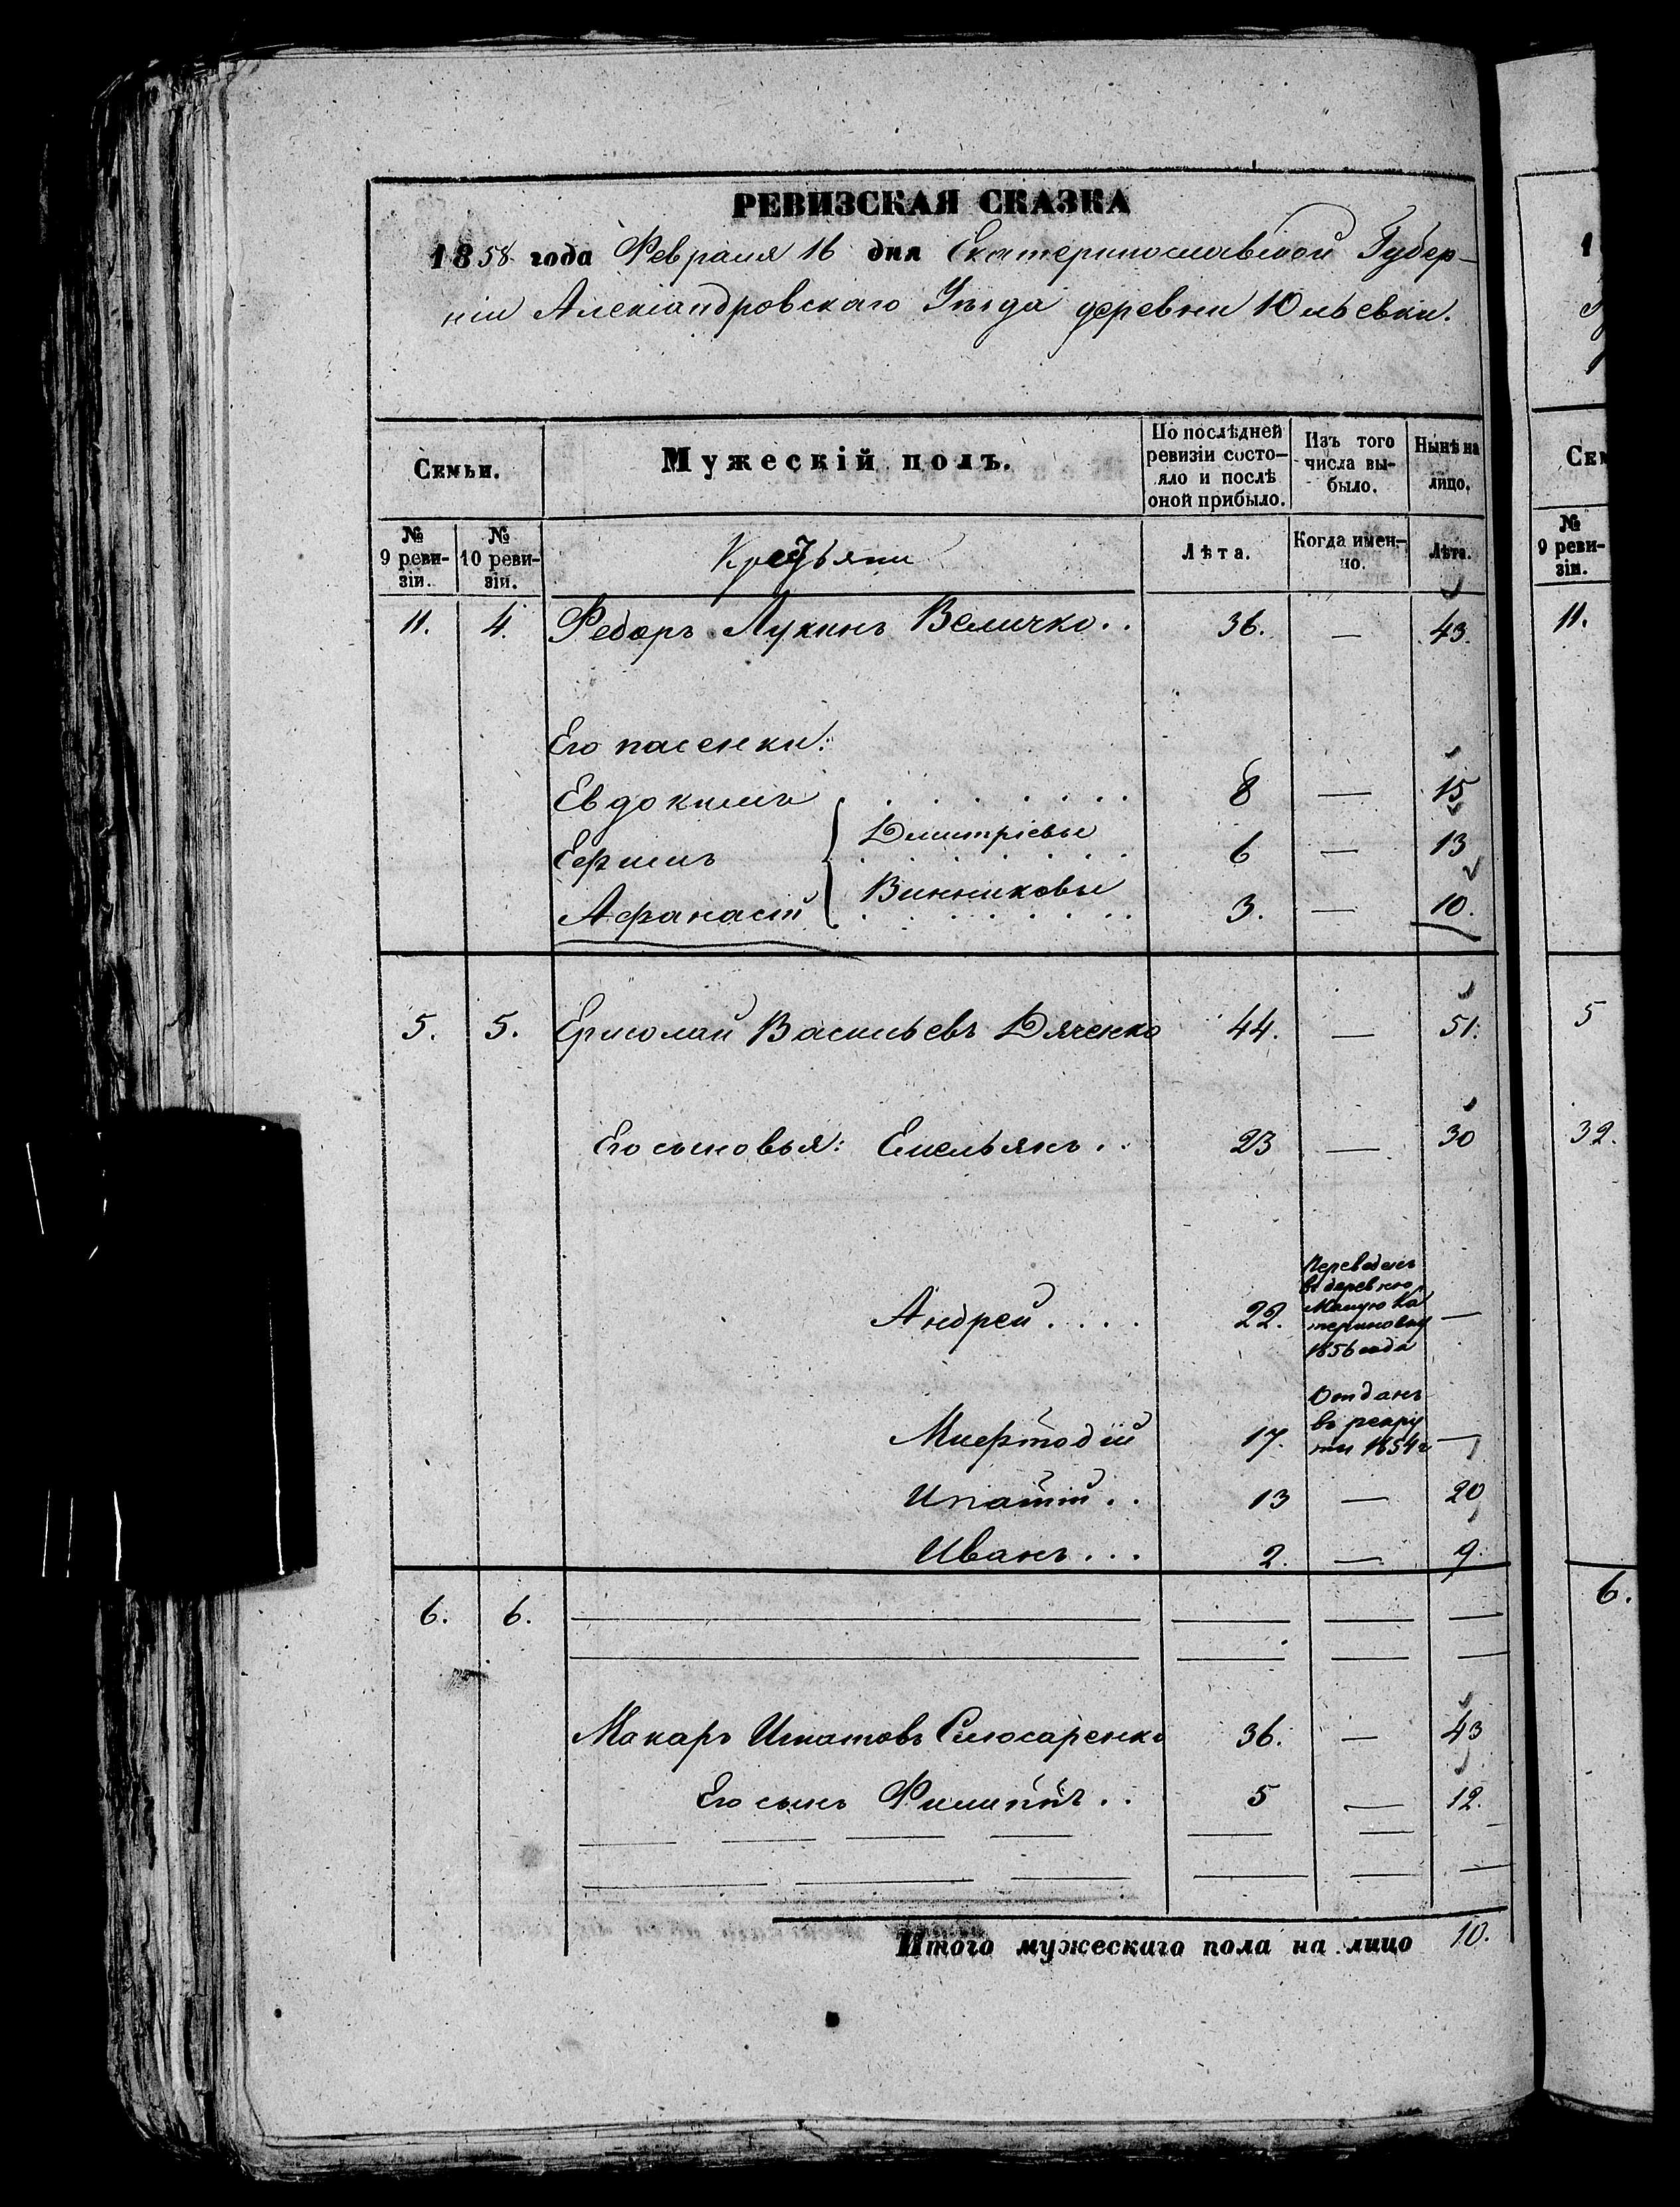 РЕВИЗСКАЯ СКАЗКА
1858 года Февраля 16 дня Екатеринославской Губер-
ніи Александровскаго Уѣзда деревни Юльевки.
Семьи.
Мужескій полъ.
По послѣдней ревизіи состо- яло и послѣ оной прибыло.
Изъ того числа вы- было.
Нынѣ на лицо.
№ 9 реви- зіи.
№ 10 реви- зіи.
Крестьяни
Лѣта.
Когда имен- но.
Лѣта.
11. 4. Федоръ Лукинъ Величко.. 36. — 43.
Его пасенки:
Евдокимъ 8 — 15
Дмитріевы
Ефимъ 6 — 13
Винниковы
Афанасій 3. — 10.
5. 5. Ермолай Васильевъ Дяченко 44. — 51.
Его сыновья: Емельянъ.. 23 — 30
Андрей.... 22. —
Переведенъ
въ деревню
Малую Ка
териновку
1856 года
Мефтодій 17. —
Отданъ
въ рекру
ты 1854 г
Ипатій.. 13 — 20
Иванъ... 2. — 9.
6. 6.
Макаръ Игнатовъ Слюсаренко 36. — 43
Его сынъ Филиппъ.. 5 — 12.
Итого мужескаго пола на лицо 10.
1
Сем
№ 9 реви- зіи.
11.
5
32.
6.